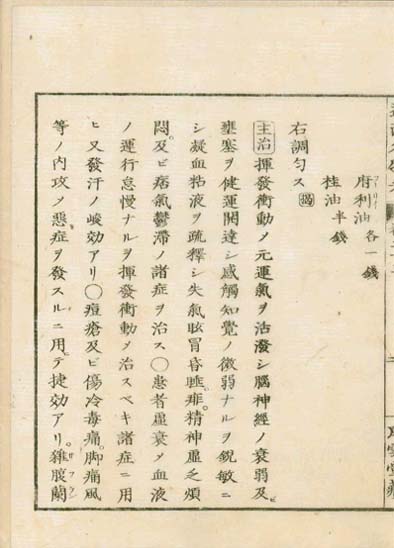 府利油各一錢
桂油半錢
右調匀ス
主治 揮發衝動メ元運氣ヲ活潑シ腦神經ノ衰弱及ヒ
壅塞ヲ健運開達シ感觸知覺ノ微弱ナルヲ銳敏ニ
シ凝血粘液ヲ疏釋シ失氣眩冒昏睡痱精神虛乏煩
悶及ビ痞氣鬱滯ノ諸症ヲ治ス○患者虛衰メ血液
ノ運行怠慢ナルヲ揮發衝動メ治スベキ諸症ニ用
ヒ又發汗ノ峻効アリ○痘瘡及ビ傷冷毒痛。脚痛風
等ノ内攻メ惡症ヲ發スルニ用ヒテ捷効アリ。雜腹蘭